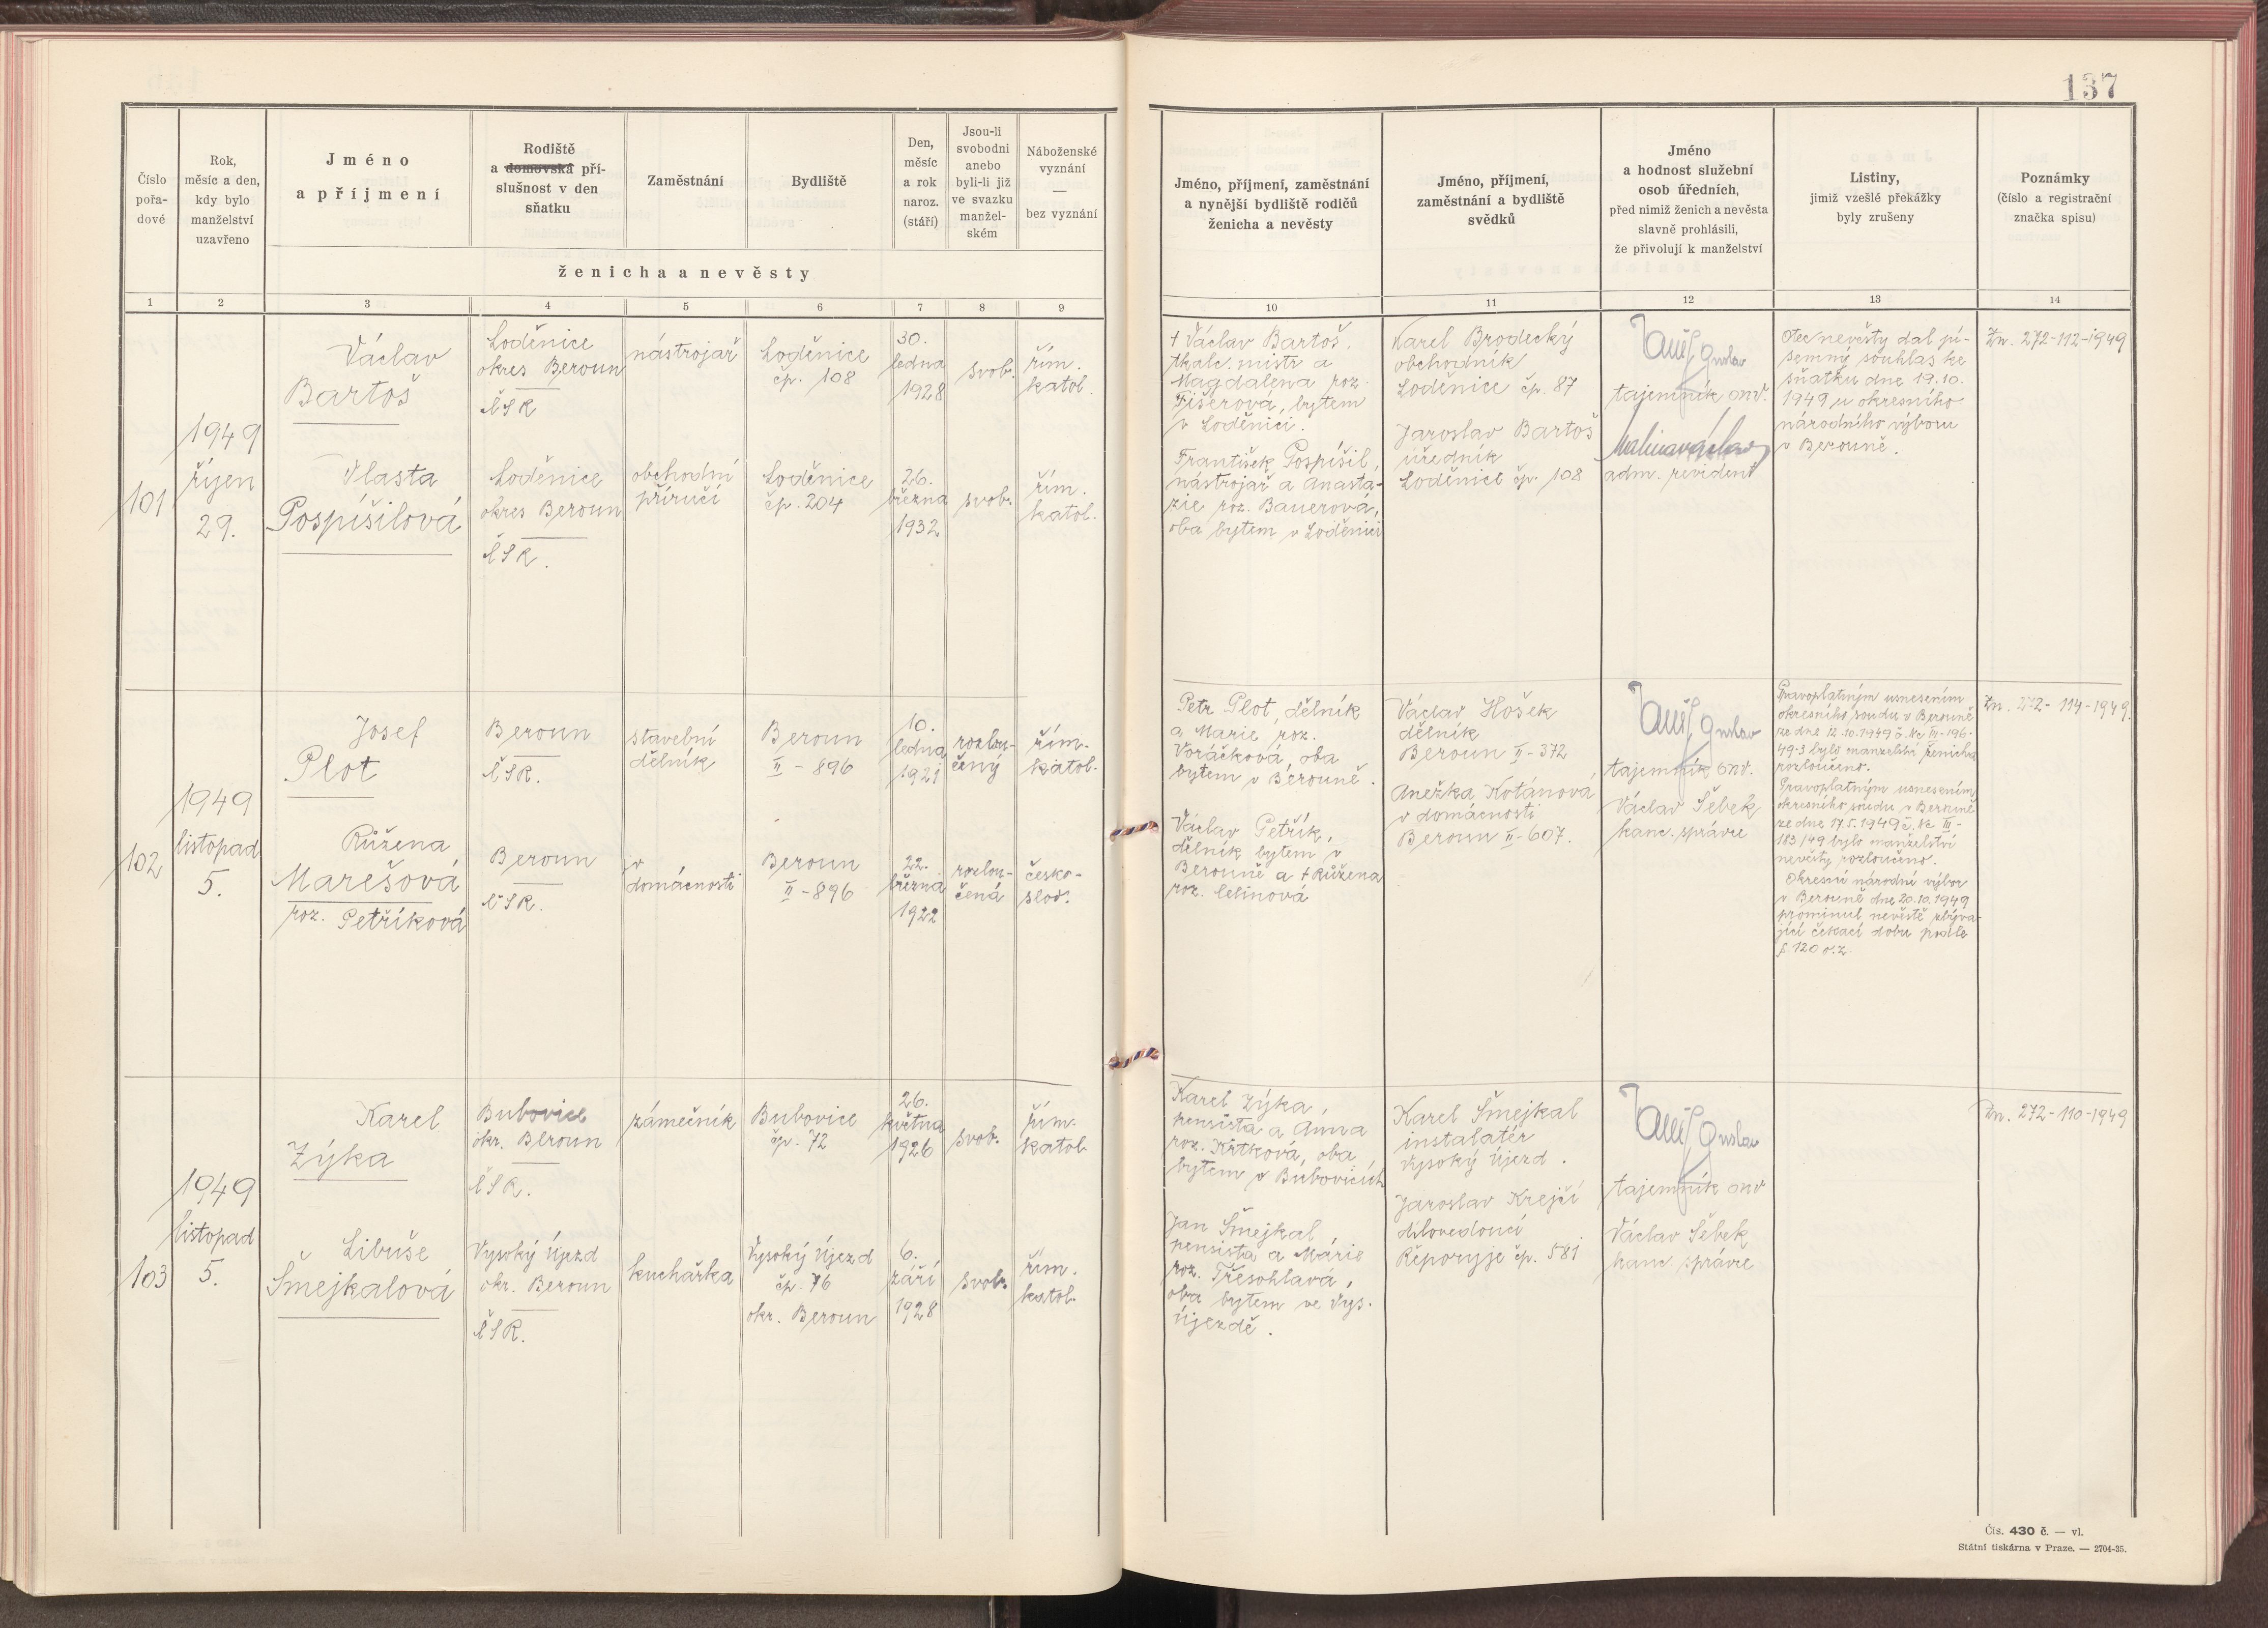 137
Číslo
pořa-
dové
Rok,
měsíc a den,
kdy bylo
manželství
uzavřeno
Jméno
a příjmení
Rodiště
a domovská pří-
slušnost v den
sňatku
Zaměstnání
Bydliště
Den,
měsíc
a rok
naroz.
(stáří)
Jsou-li
svobodni
anebo
byli-li již
ve svazku
manžel-
ském
Náboženské
vyznání
—
bez vyznání
ženicha a nevěsty
Jméno, příjmení, zaměstnání
a nynější bydliště rodičů
ženicha a nevěsty
Jméno, příjmení,
zaměstnání a bydliště
svědků
Jméno
a hodnost služební
osob úředních,
před nimiž ženich a nevěsta
slavně prohlásili,
že přivolují k manželství
Listiny,
jimiž vzešlé překážky
byly zrušeny
Poznámky
(číslo a registrační
značka spisu)
1 2 3 4 5 6 7 8 9 10 11 12 13 14
101
1949
říjen
29.
Václav
Bartoš
Loděnice
okres Beroun
ČSR
nástrojař
Loděnice
čp. 108
30.
ledna
1928
svob.
řím.
katol.
Vlasta
Pospíšilová
Loděnice
okres Beroun
ČSR.
obchodní
příručí
Loděnice
čp. 204
26.
března
1932
svob.
řím.
katol.
† Václav Bartoš,
tkalc. mistr a
Magdalena roz.
Fišerová, bytem
v Loděnici.
František Pospíšil,
nástrojař a Anasta-
zie roz. Bauerová,
oba bytem v Loděnici
Karel Brodecký
obchodník
Loděnice čp. 87
Jaroslav Bartoš
úředník
Loděnice čp. 108
Gustav
tajemník onv.
Malina Václav
adm. revident
Otec nevěsty dal pí-
semný souhlas ke
sňatku dne 19.10.
1949 u okresního
národního výboru
v Berouně.
Zn. 272-112-1949
102
1949
listopad
5.
Josef
Plot
Beroun
ČSR.
stavební
dělník
Beroun
II - 896
10.
ledna
1921
rozlou-
čený
řím.
katol.
Růžena
Marešová
roz. Petříková
Beroun
ČSR.
v
domácnosti
Beroun
II - 896
22.
března
1922
rozlou-
čená
česko-
slov.
Petr Plot, dělník
a Marie roz.
Voráčková, oba
bytem v Berouně.
Václav Petřík,
dělník bytem v
Berouně a † Růžena
roz. Celinová
Václav Hošek
dělník
Beroun II - 372
Anežka Kotánová
v domácnosti
Beroun II - 607.
Gustav
tajemník onv.
Václav Šebek
kanc. správce
Pravoplatným usnesením
okresního soudu v Berouně
ze dne 12.10.1949 č. Nc III-196-
49-3 bylo manželství ženicha
rozloučeno.
Pravoplatným usnesením
okresního soudu v Berouně
ze dne 17.5.1949 č. Nc III-
183/49 bylo manželství
nevěsty rozloučeno.
Okresní národní výbor
v Berouně dne 20.10.1949
prominul nevěstě zbýva-
jící čekací dobu podle
§ 120 o.z.
Zn. 272-114-1949.
103
1949
listopad
5.
Karel
Zýka
Bubovice
okr. Beroun
ČSR.
zámečník
Bubovice
čp. 72
26.
května
1926
svob.
řím.
katol.
Libuše
Šmejkalová
Vysoký Újezd
okr. Beroun
ČSR.
kuchařka
Vysoký Újezd
čp. 76
okr. Beroun
6.
září
1928
svob.
řím.
katol.
Karel Zýka,
pensista a Anna
roz. Krtková, oba
bytem v Bubovicích
Jan Šmejkal,
pensista a Marie
roz. Třesohlavá,
oba bytem ve Vys.
Újezdě.
Karel Šmejkal
instalatér
Vysoký Újezd.
Jaroslav Krejčí
dílovedoucí
Řeporyje čp. 581
Gustav
tajemník onv
Václav Šebek
kanc. správce
Zn. 272-110-1949
Čís. 430 č. — vl.
Státní tiskárna v Praze. — 2704-35.